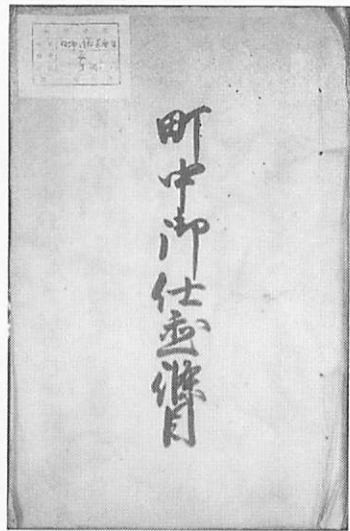 町中御仕置條目